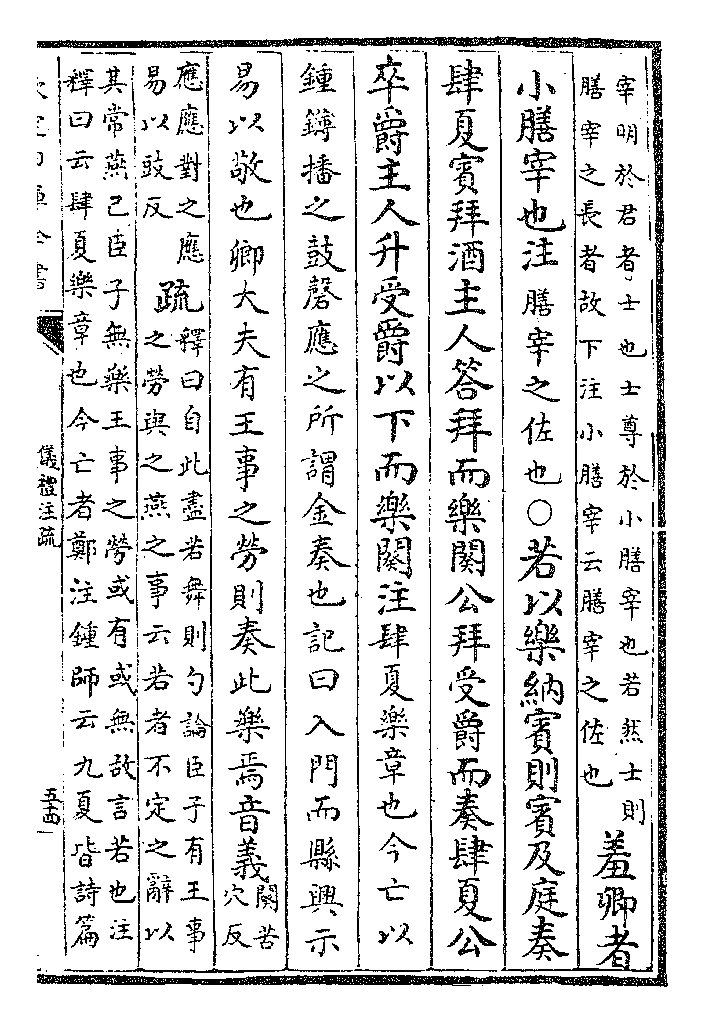 宰明於君者士也士尊於小膳宰也若然士則
膳宰之長者故下注小膳宰云膳宰之佐也
羞卿者
小膳宰也注膳宰之佐也○若以樂納賓則賓及庭奏
肆夏賓拜酒主人答拜而樂闋公拜受爵而奏肆夏公
卒爵主人升受爵以下而樂闋注肆夏樂章也今亡以
鍾鎛播之鼓磬應之所謂金奏也記曰入門而縣興示
易以敬也卿大夫有王事之勞則奏此樂焉音義
闋苦
穴反
應應對之應
易以豉反
疏
釋曰自此盡若舞則勺論臣子有王事
之勞與之燕之事云若者不定之辭以
其常燕己臣子無樂王事之勞或有或無故言若也注
釋曰云肆夏樂章也今亡者鄭注鍾師云九夏皆詩篇
儀禮注疏
五十四